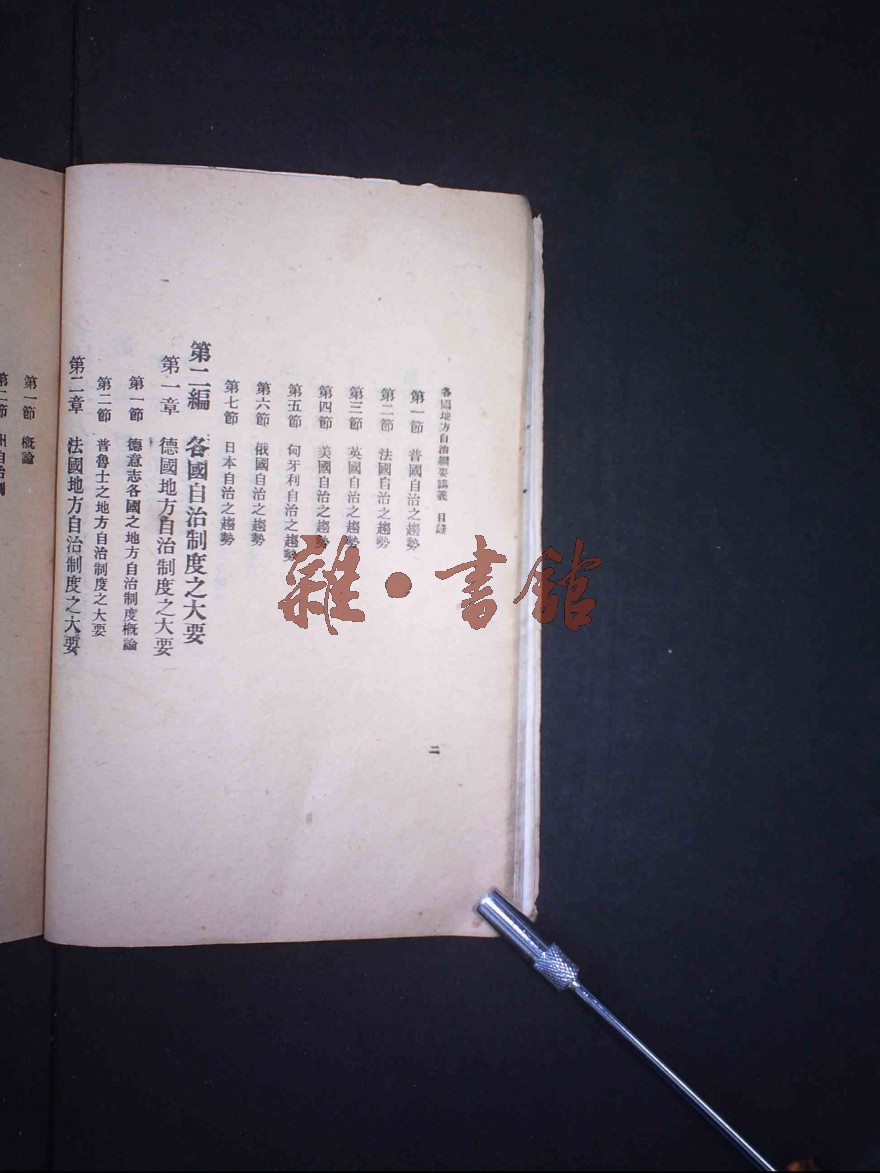 各國地方自治綱要講義 目錄
第一節 普國自治之趨勢
第二節 法國自治之趨勢
第三節 英國自治之趨勢
第四節 美國自治之趨勢
第五節 匈牙利自治之趨勢
第六節 俄國自治之趨勢
第七節 日本自治之趨勢
第二編 各國自治制度之大要
第一章 德國地方自治制度之大要
第一節 德意志各國之地方自治制度概論
第二節 普魯士之地方自治制度之大要
第二章 法國地方自治制度之大要
二
第一節 概論
第二節 州自治制
雜·書館